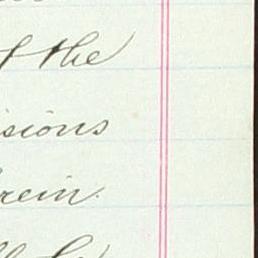 of the
isions
rein.